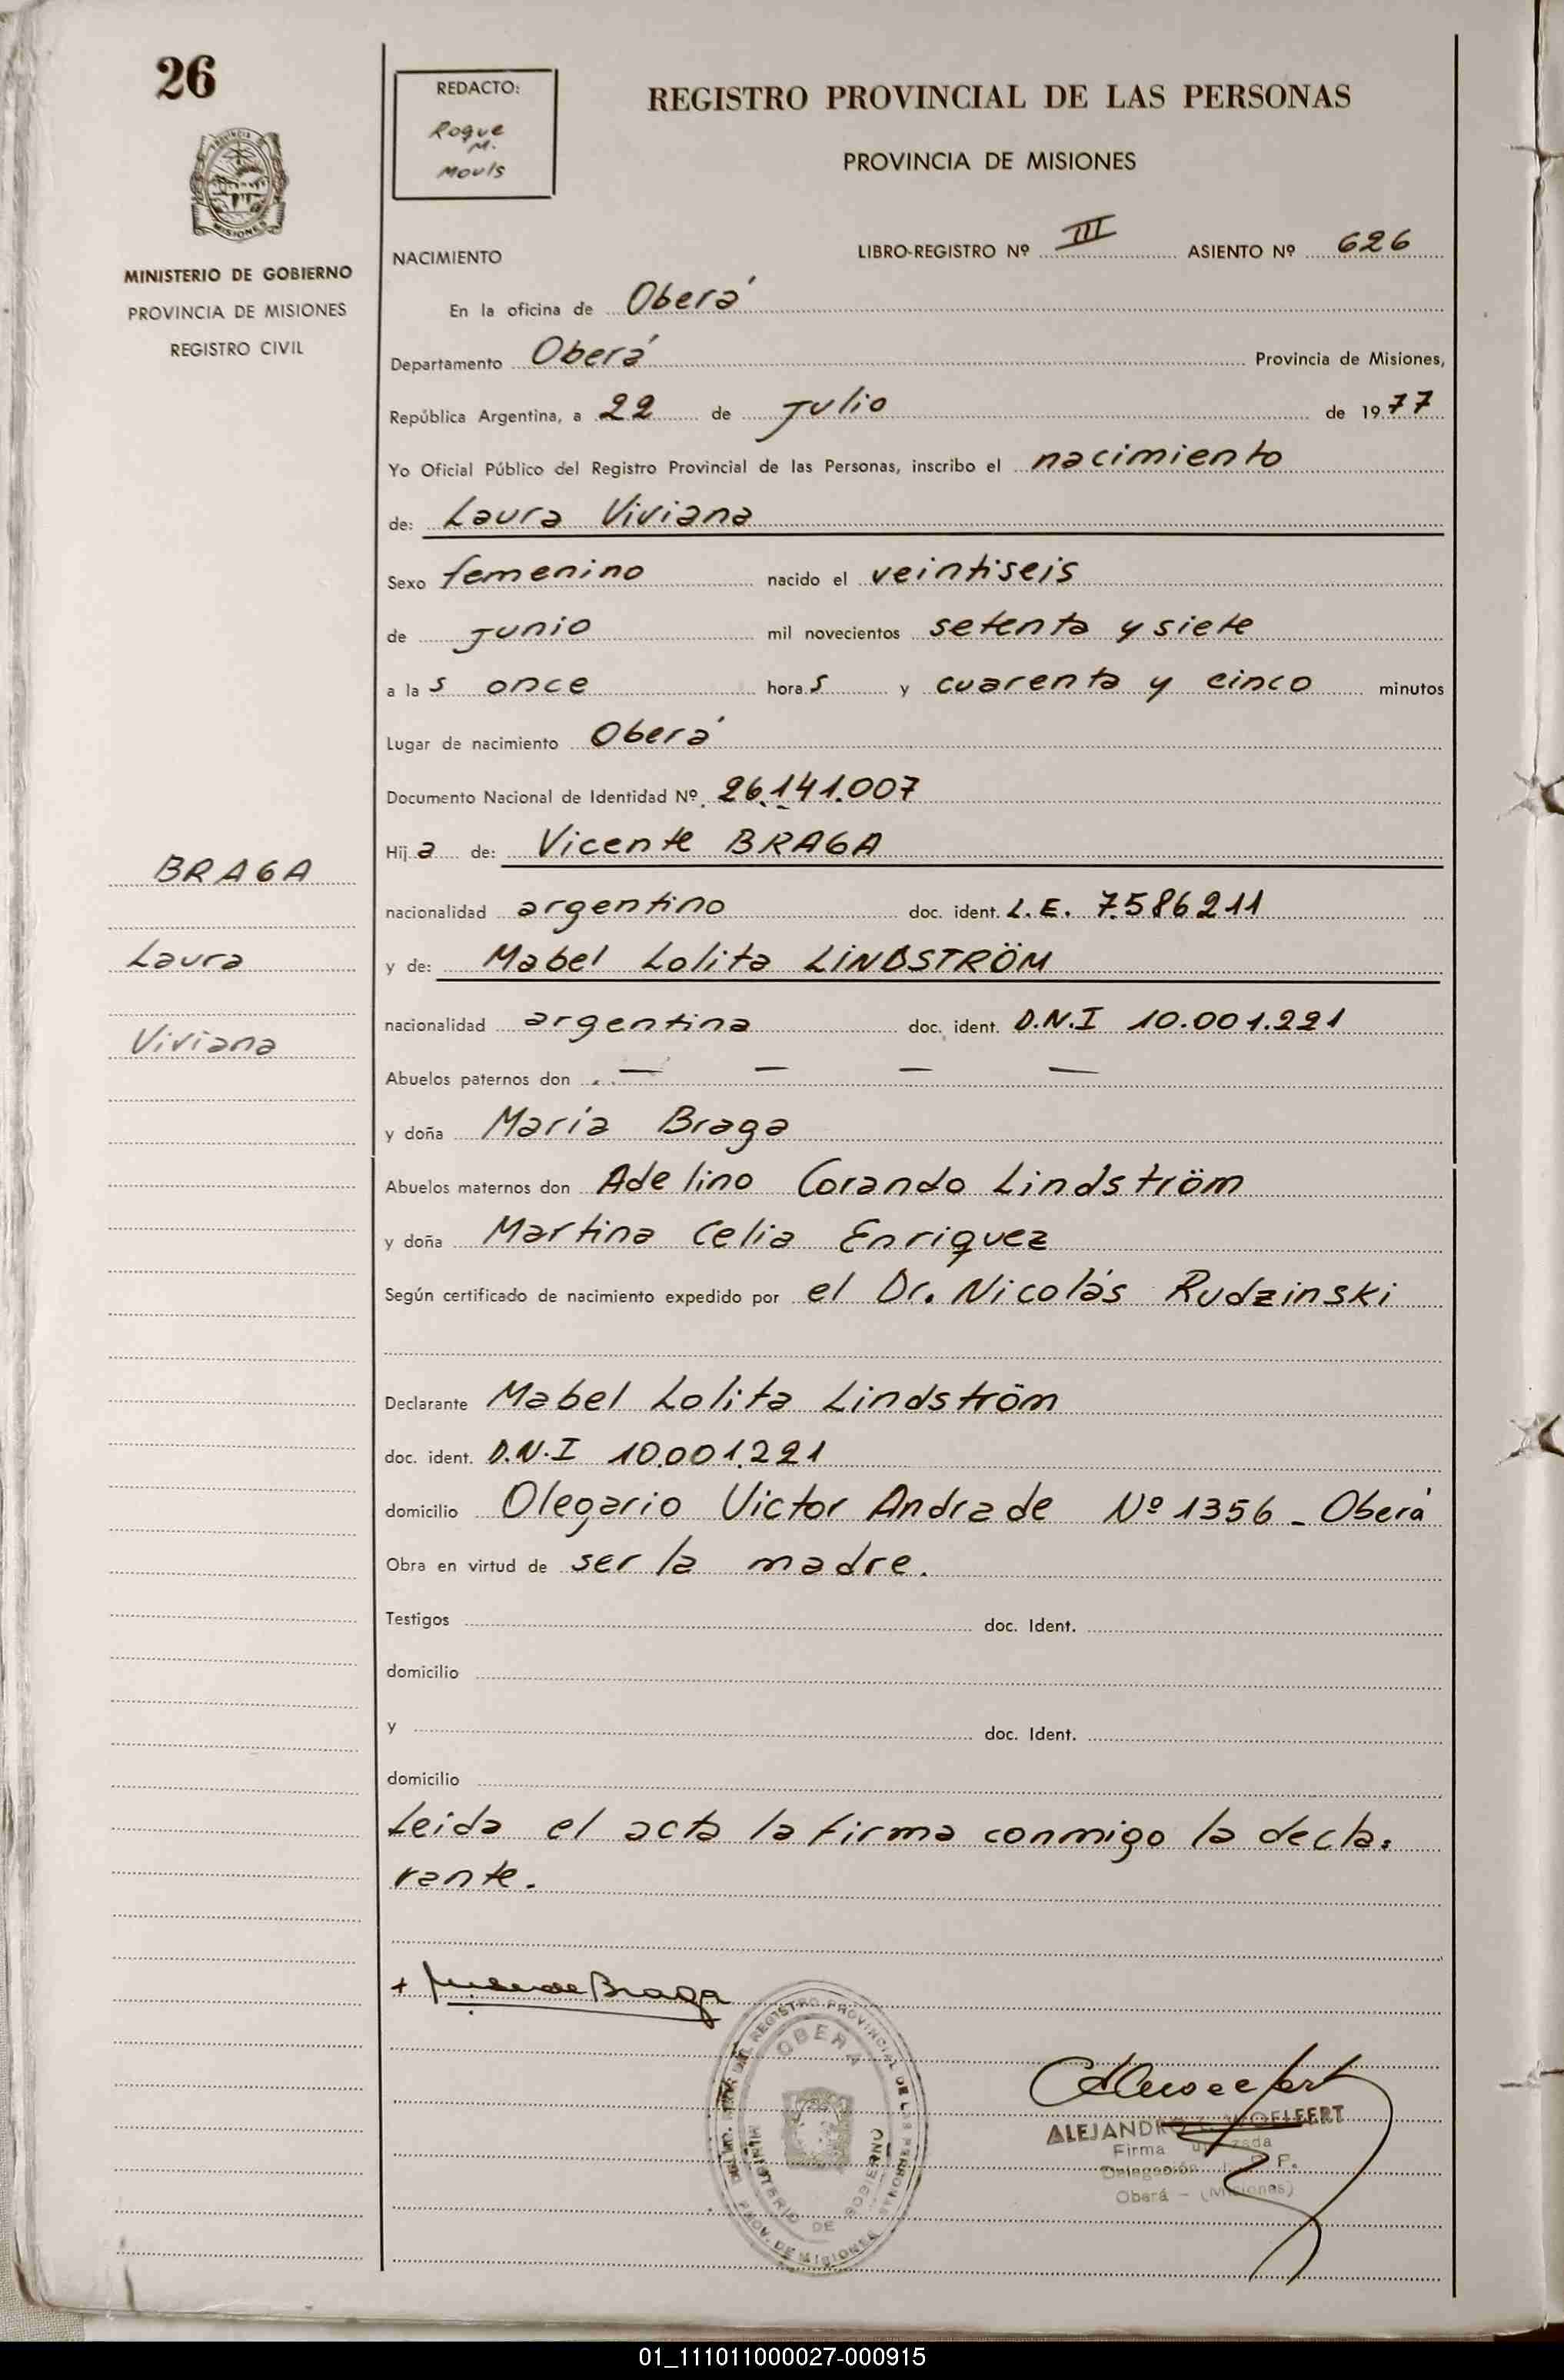 26
REDACTO:
Roque
M.
Mouls
REGISTRO PROVINCIAL DE LAS PERSONAS
PROVINCIA DE MISIONES
MISIONES
MINISTERIO DE GOBIERNO
PROVINCIA DE MISIONES
REGISTRO CIVIL
NACIMIENTO LIBRO-REGISTRO Nº III ASIENTO Nº 626
En la oficina de Oberá
Departamento Oberá Provincia de Misiones,
República Argentina, a 22 de Julio de 1977
Yo Oficial Público del Registro Provincial de las Personas, inscribo el nacimiento
de: Laura Viviana
Sexo femenino nacido el veintiseis
de Junio mil novecientos setenta y siete
a las once horas y cuarenta y cinco minutos
Lugar de nacimiento Oberá
Documento Nacional de Identidad Nº 26.141.007
Hija de: Vicente BRAGA
BRAGA
nacionalidad argentino doc. ident. L.E. 7.586.211
Laura
y de: Mabel Lolita LINDSTRÖM
nacionalidad argentina doc. ident. D.N.I 10.001.221
Viviana
Abuelos paternos don — — — —
y doña María Braga
Abuelos maternos don Adelino Corando Lindström
y doña Martina Celia Enriquez
Según certificado de nacimiento expedido por el Dr. Nicolás Rudzinski
Declarante Mabel Lolita Lindström
doc. ident. D.N.I 10.001.221
domicilio Olegario Victor Andrade Nº 1356 - Oberá
Obra en virtud de ser la madre.
Testigos doc. Ident.
domicilio
y doc. Ident.
domicilio
Leida el acta la firma conmigo la decla=
rante.
+ de Braga
REGISTRO PROVINCIAL DE LAS PERSONAS
OBERA
MINISTERIO DE GOBIERNO
PROV. DE MISIONES
ALEJANDRO WOELFERT
Firma
Delegación
Oberá - (Misiones)
01_111011000027-000915